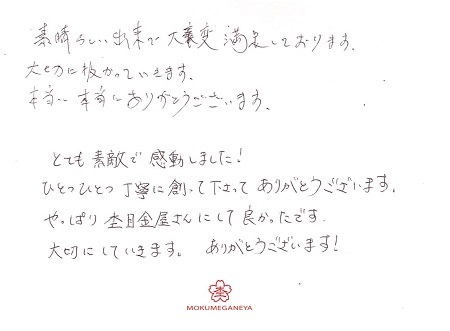 素晴らしい出来で大変満足しております。
大切に扱かっていきます。
本当に本当にありがとうございます。
とても素敵で感動しました!
ひとつひとつ丁寧に創って下さってありがとうございます。
やっぱり杢目金屋さんにして良かったです。
大切にしていきます。 ありがとうございます!
杢
MOKUMEGANEYA